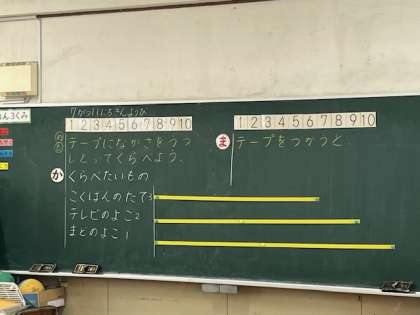 さんくみ
7がつ11にちきんようび
1 2 3 4 5 6 7 8 9 10
めあて
テープにながさをうつ
しとってくらべよう。
か くらべたいもの
こくばんのたて3
テレビのよこ2
まどのよこ1
1 2 3 4 5 6 7 8 9 10
ま テープをつかうと、